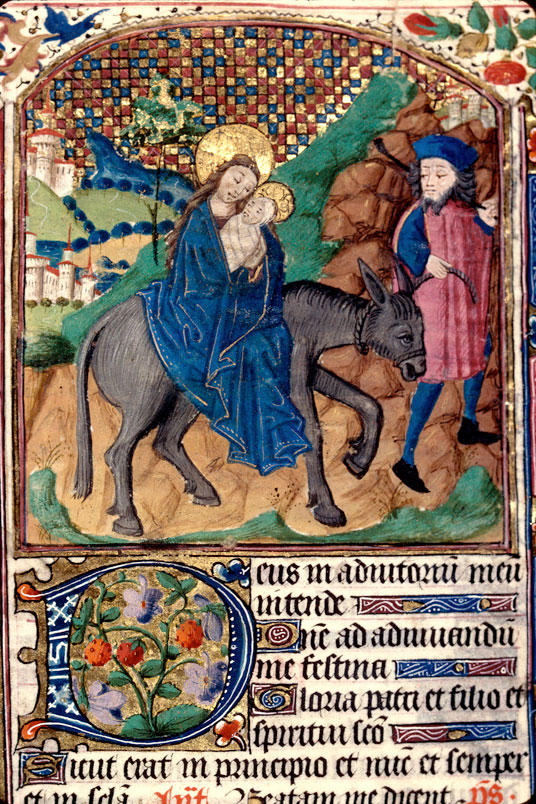 Deus in adiutoriū meū
intende
Dn̄e ad adiuuandū
me festina
Gloria patri et filio et
spiritui sc̄o
Sicut erat in principio et nūc et semper
et in sc̄la Ant̄. Beatam me dicent p̄s.